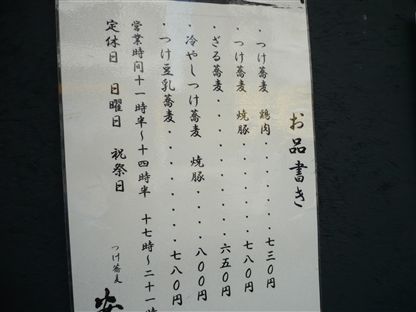 お品書き
・つけ蕎麦　鶏肉・・・・・七三〇円
・つけ蕎麦　焼豚・・・・・七八〇円
・ざる蕎麦・・・・・・・・・六五〇円
・冷やしつけ蕎麦　焼豚・・・八〇〇円
・つけ豆乳蕎麦・・・・・・・七八〇円
営業時間十一時半〜十四時半　十七時〜二十一時
定休日　日曜日　祝祭日
つけ蕎麦